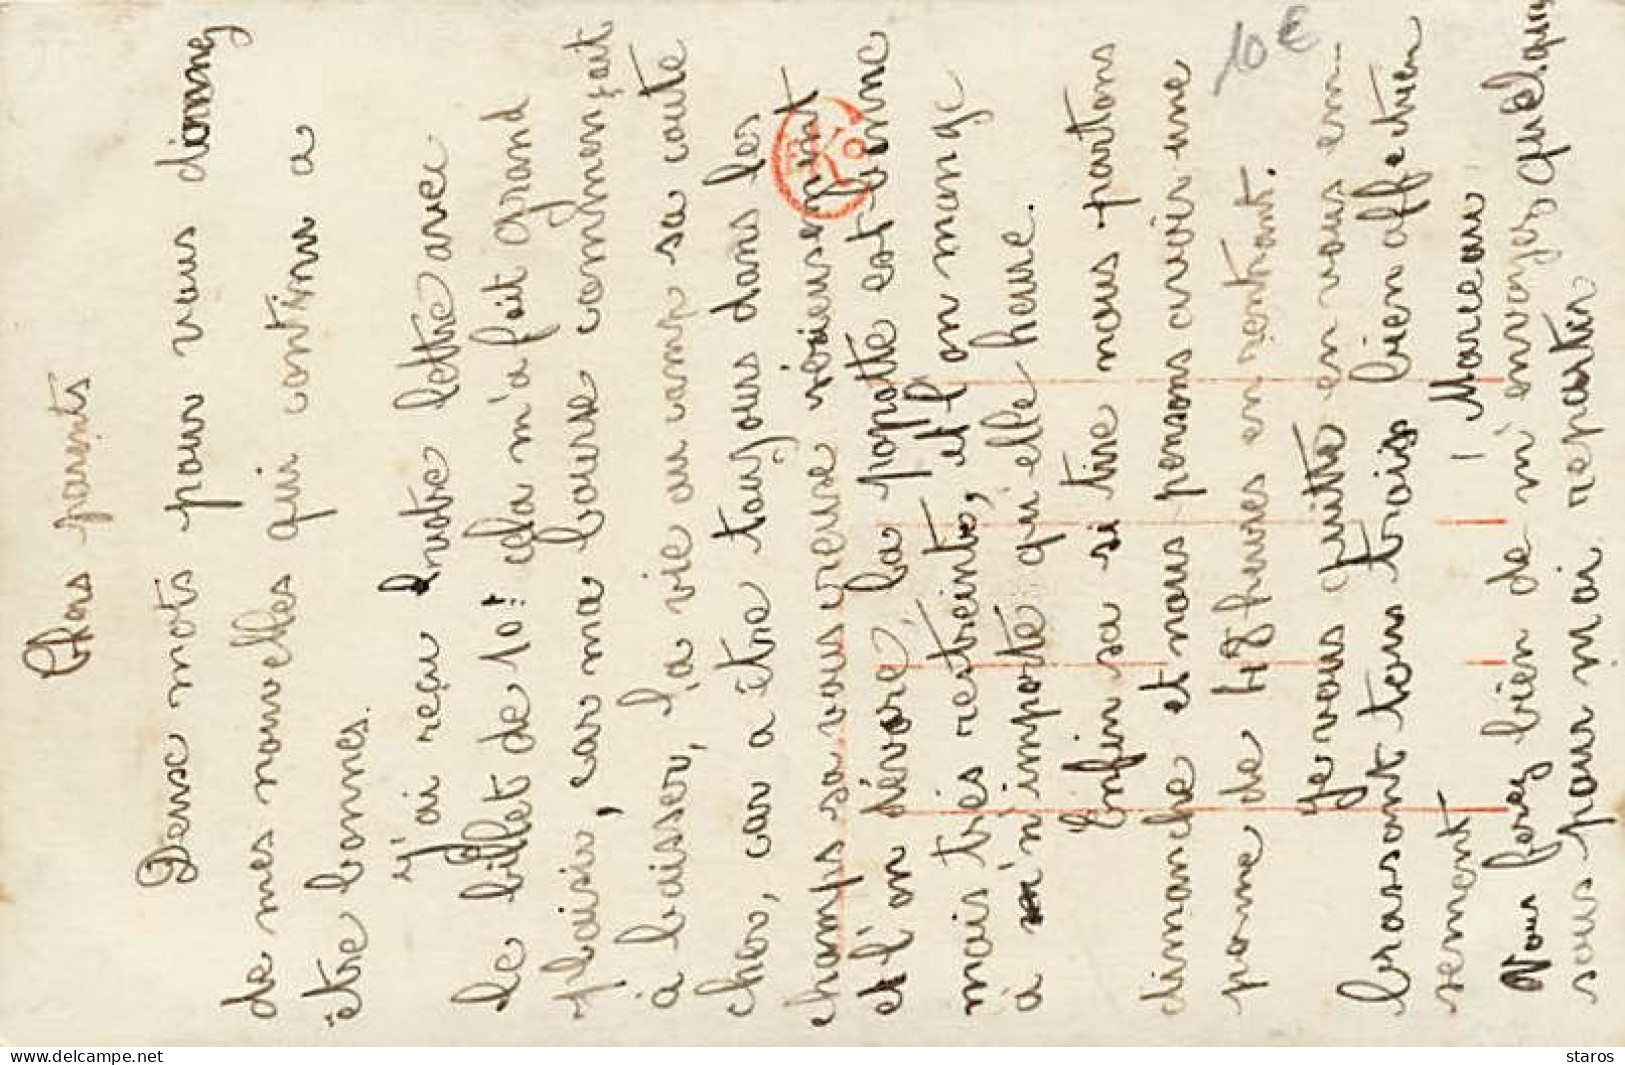 Chers parents
Deux mots pour vous donnez
de mes nouvelles qui continu a
être bonnes.
J'ai reçu votre lettre avec
le billet de 10f cela m'a fait grand
plaisir, car ma bourse commençait
à baisser, la vie au camp sa coute
cher, car a être toujours dans les
champs sa vous creuse sérieusement
et l'on dévore, la popotte est bonne
mais très restreinte, et l'on mange
à n'importe qu'elle heure.
Enfin sa si tire nous partons
dimanche et nous pensons avoir une
perme de 48 heures en rentrant.
Je vous quitte en vous em-
brassant tous trois bien affectueu
sement
Marceau
Vous ferez bien de m'envoyez quelques
sous pour m'ai repartir
10 €
www.delcampe.net
staros